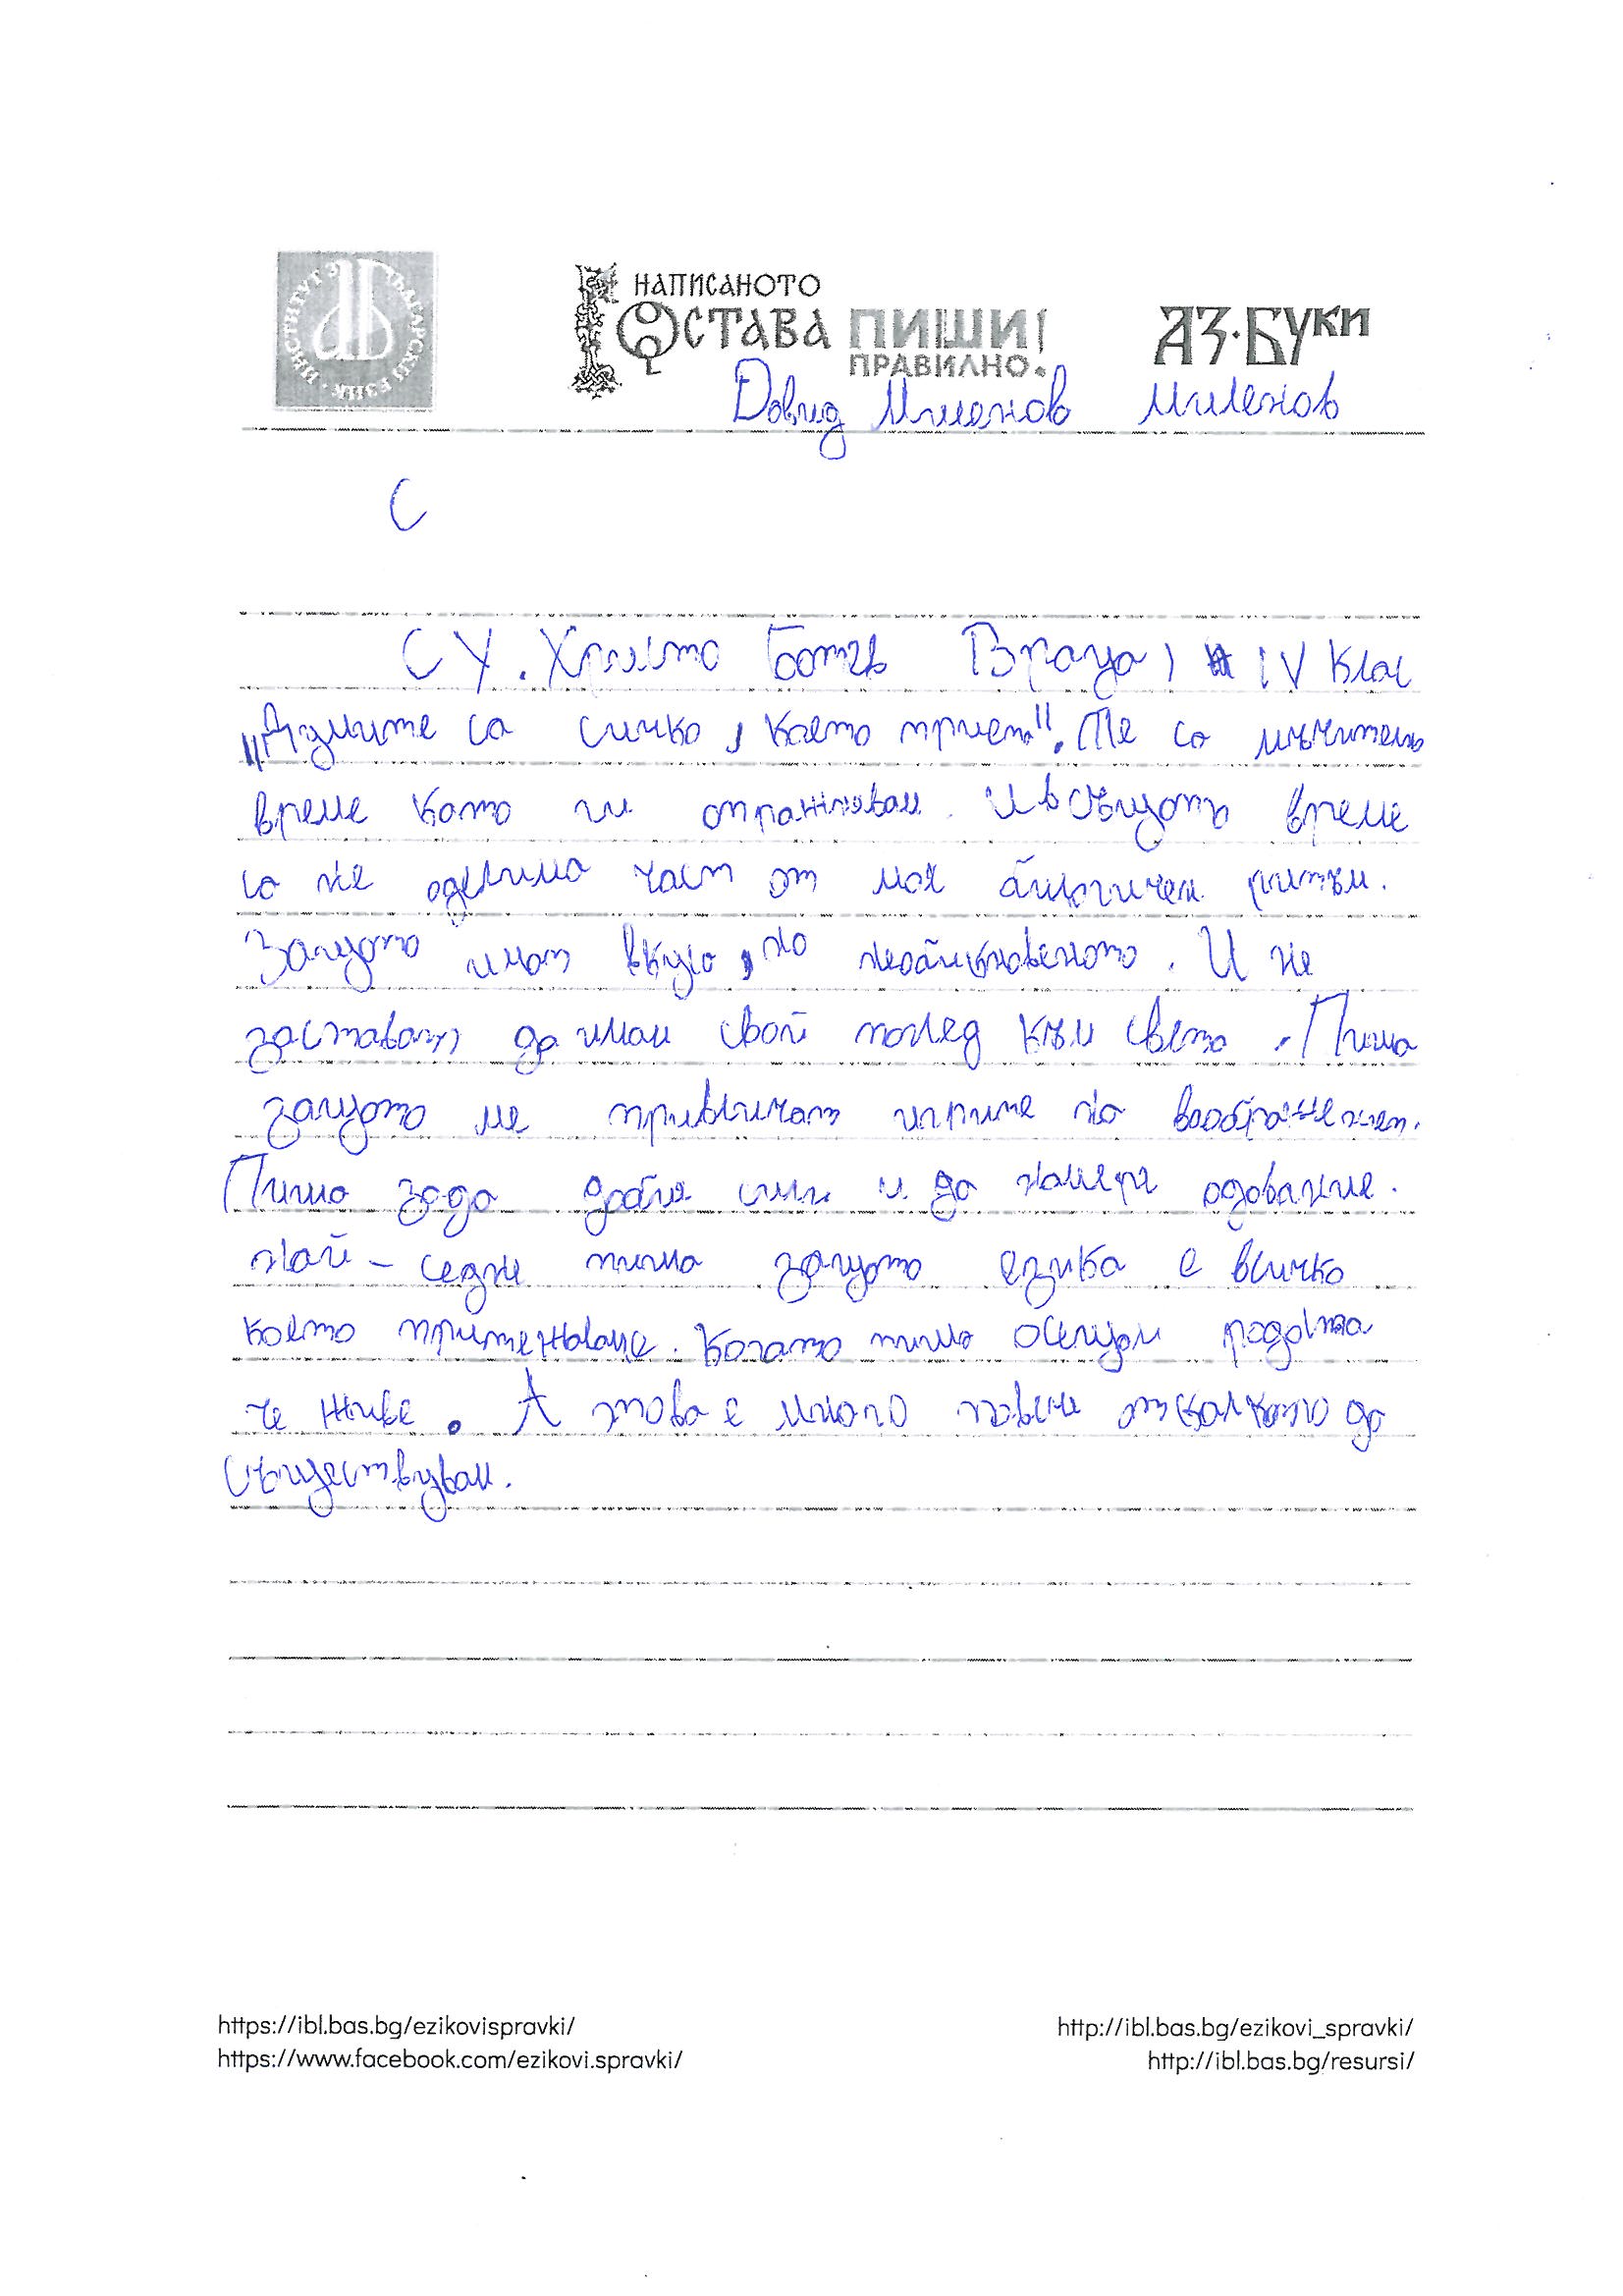 ИНСТИТУТ ЗА БЪЛГАРСКИ ЕЗИК
НАПИСАНОТО
ОСТАВА ПИШИ!
ПРАВИЛНО.
АЗ·БУКИ
Давид Миленов Миленов
С
СУ. Христо Ботев Враца, IV клас
"Думите са сичко, което". Те са мъчителни
време като ги отражнявам. И в същото време
са не оделима част от моя ритъм.
Защото имат вкуса, на необикновеното. И не
заставят да имам свой поглед към света. Пиша
защото ме привличат игрите на
Пиша зада добия и да намеря одование.
най-седне пиша защото езика е всичко
което притежаваме. Когато пиша осещам
че живе. А това е много повече отколкото да
съществувам.
https://ibl.bas.bg/ezikovispravki/
https://www.facebook.com/ezikovi.spravki/
http://ibl.bas.bg/ezikovi_spravki/
http://ibl.bas.bg/resursi/